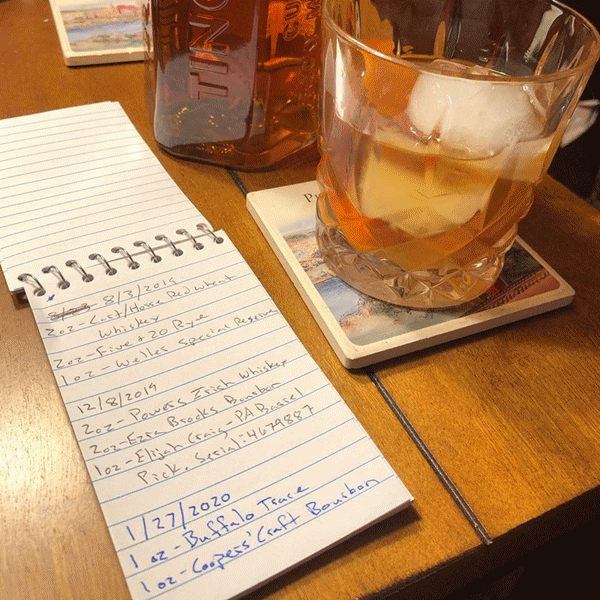 TIN
8/3/2019
2oz-Cast/Horse Red Wheat
Whiskey
2oz-Five & 20 Rye
1oz-Weller Special Reserve
12/8/2019
2oz-Powers Irish Whiskey
2oz-Ezra Brooks Bourbon
1oz-Elijah Craig-PA Barrel
Pick. Serial: 4679887
1/27/2020
1 oz-Buffalo Trace
1oz-Coopers' Craft Bourbon